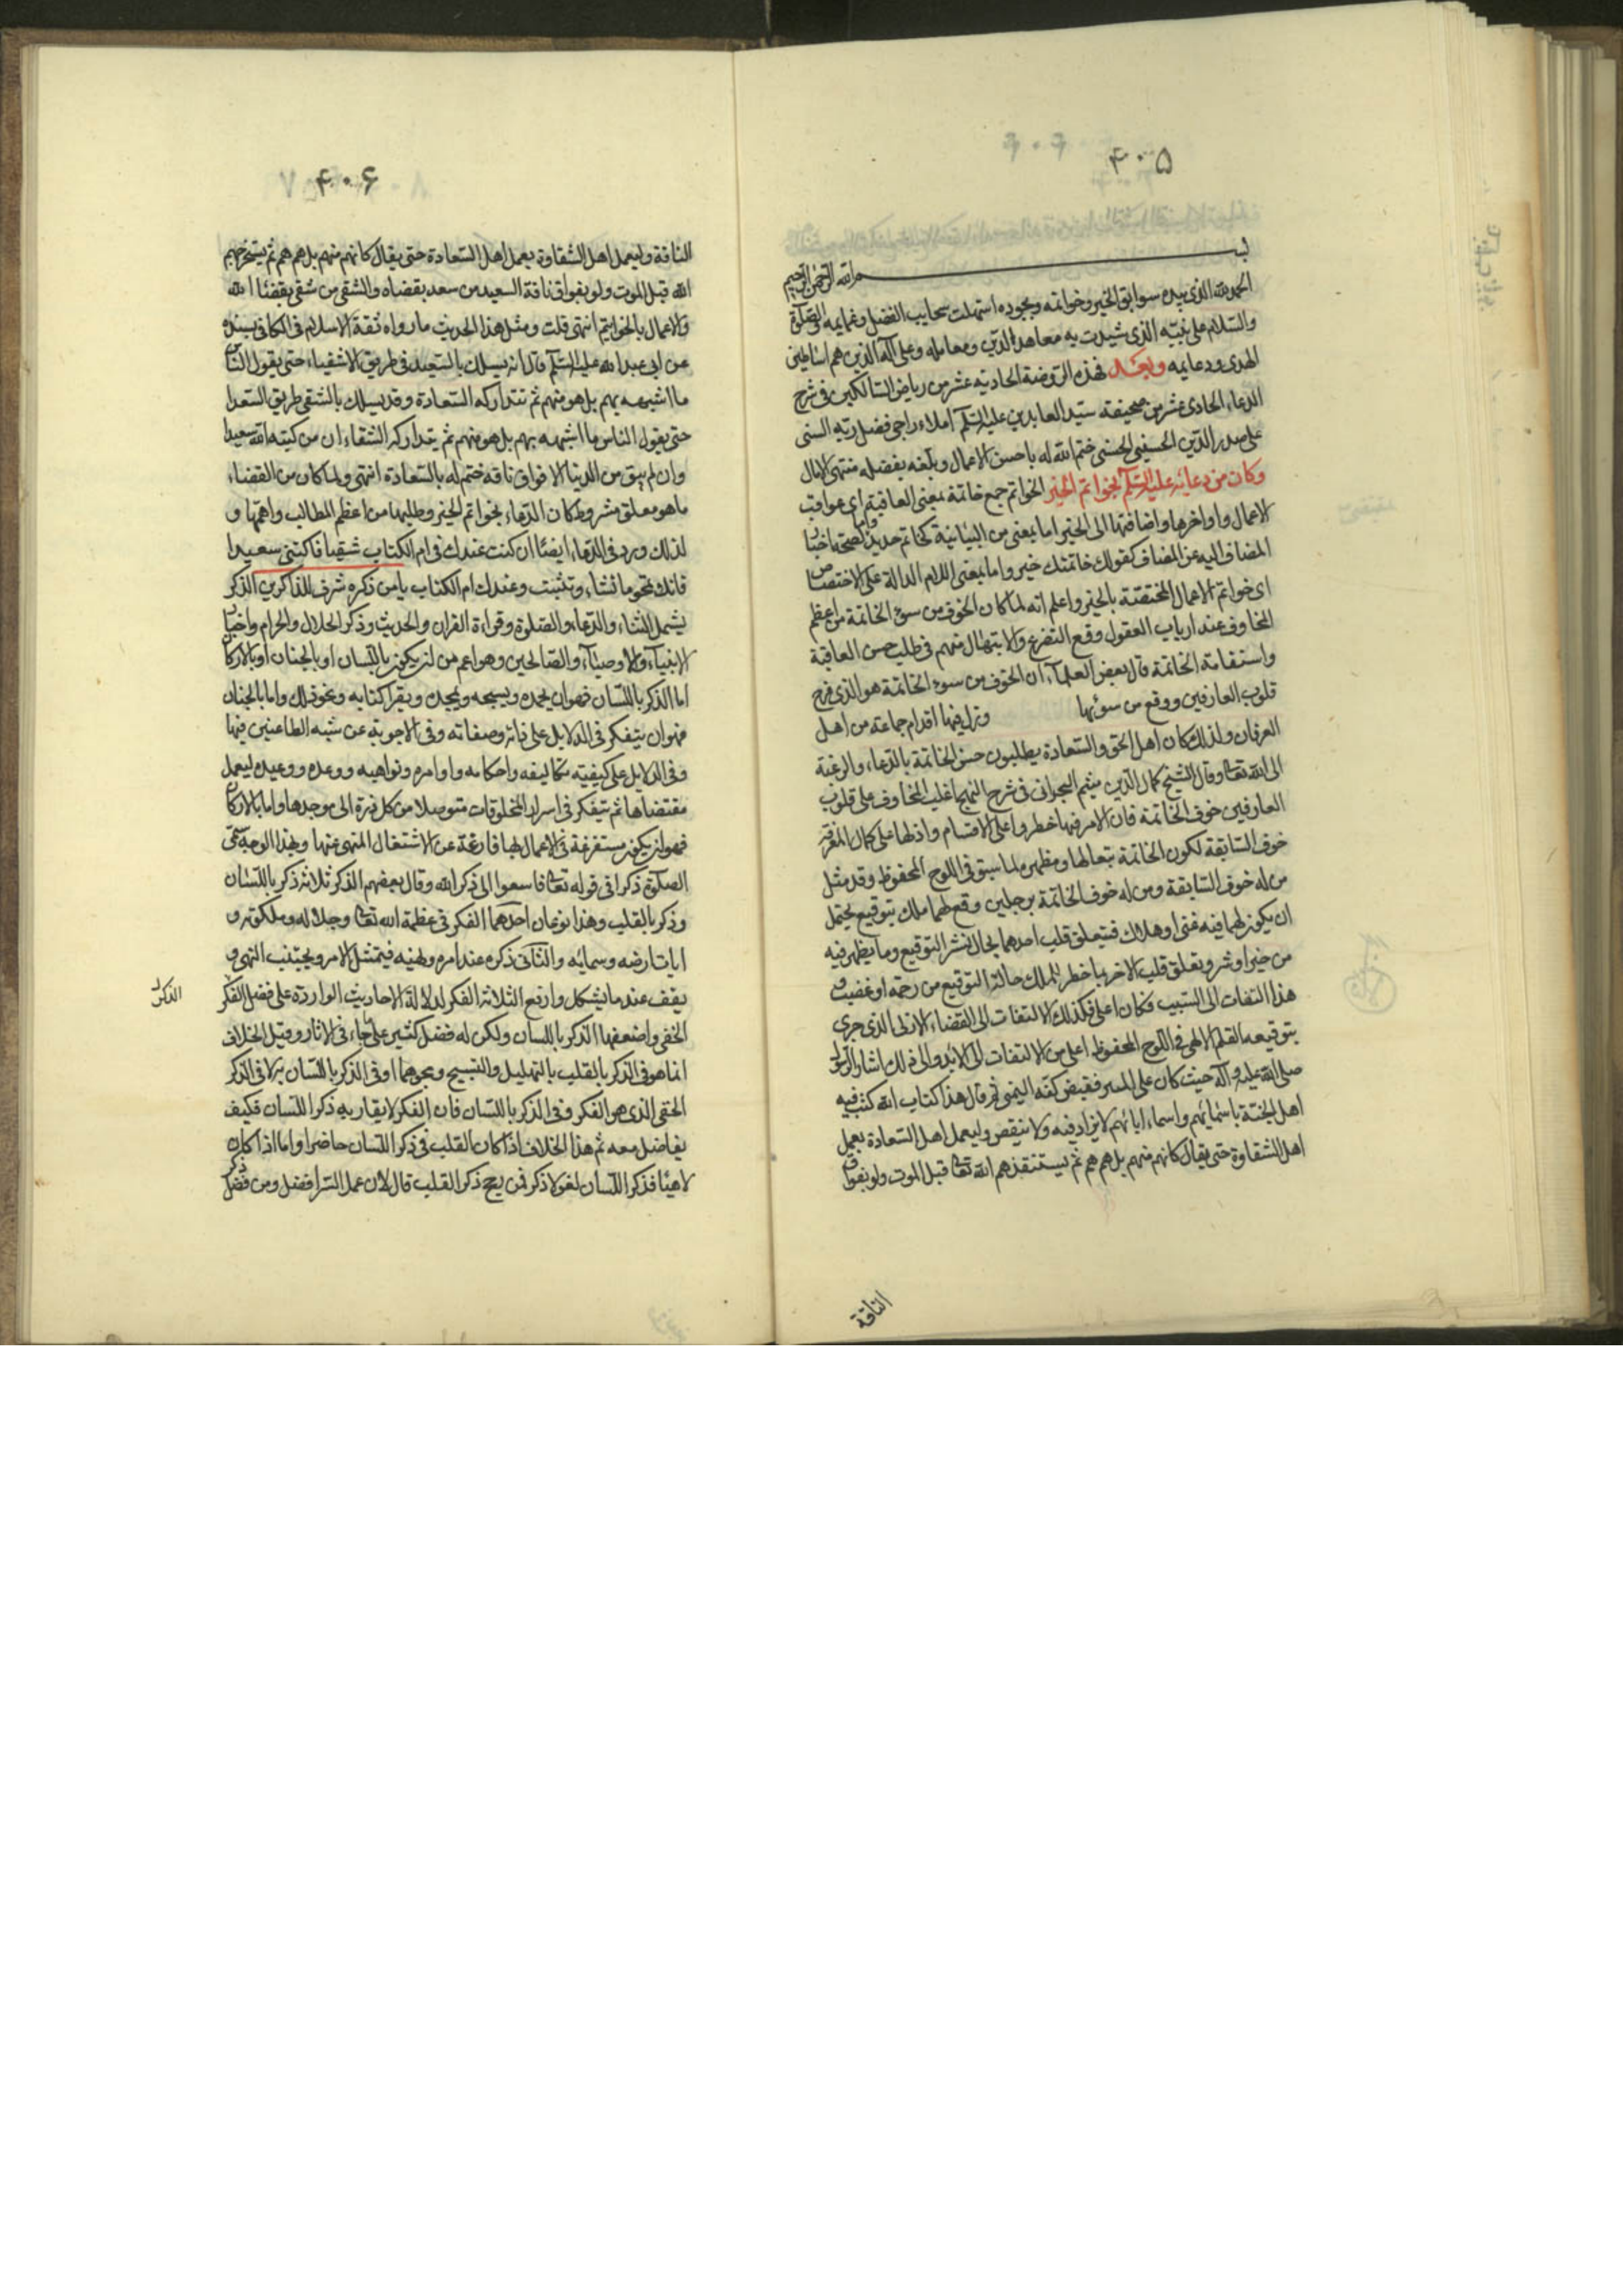 ۴۰۵
بسم الله الرحمن الرحیم
الحمد لله الذی بیده سوابق الخیر وخواتمه وبجوده استهلت سحایب الفضل وغمایمه والصلوة
والسلام علی نبیه الذی شیدت به معاهد الدین ومعامله وعلی آله الذین هم اساطین
الهدی ودعایمه وبعد فهذه الروضة الحادیة عشر من ریاض السالکین فی شرح
الدعاء الحادی عشر من صحیفة سید العابدین علیه السلام املاء راجی فضل ربه السنی
علی صدر الدین الحسینی الحسنی ختم الله له باحسن الاعمال وبلغه بفضله منتهی الامال
وکان من دعائه علیه السلام بخواتم الخیر الخواتم جمع خاتمة بمعنی العاقبة ای عواقب
الاعمال واواخرها واضافتها الی الخیر اما بمعنی من البیانیة کخاتم حدید واما لصحة اخبار
المضاف الیه عن المضاف کقولك خاتمتك خیر واما بمعنی اللام الدالة علی الاختصاص
ای خواتم الاعمال المختصة بالخیر واعلم انه لما کان الخوف من سوء الخاتمة من اعظم
المخاوف عند ارباب العقول وقع التضرع والابتهال منهم فی طلب حسن العاقبة
واستقامة الخاتمة قال بعض العلماء ان الخوف من سوء الخاتمة هو الذی قرح
قلوب العارفین ووقع من سوئها وتزل فیها اقدام جماعة من اهل
العرفان ولذلك کان اهل الحق والسعادة یطلبون حسن الخاتمة بالدعاء والرغبة
الی الله تعا وقال الشیخ کمال الدین میثم البحرانی فی شرح النهج اغلب المخاوف علی قلوب
العارفین خوف الخاتمة فان الامر فیها خطر واعلی الاقسام وادلها علی کمال المعرفة
خوف السابقة لکون الخاتمة تبعا لها ومظهرة لما سبق فی اللوح المحفوظ وقد مثل
من له خوف السابقة ومن له خوف الخاتمة برجلین وقع لهما ملك بتوقیع یحتمل
ان یکون لهما فیه غنی او هلاك فیتعلق قلب احدهما بحال نشر التوقیع وما یظهر فیه
من خیر او شر وتعلق قلب الاخر بما خطر للملك حالة التوقیع من رحمة او غضب و
هذا التفات الی السبب فکان اعلی فکذلك الالتفات الی القضاء الازلی الذی جری
بتوقیعه القلم الالهی فی اللوح المحفوظ اعلی من الالتفات الی الابد والی ذلك اشار الرسول
صلی الله علیه وآله حیث کان علی المنبر فقبض کفه الیمنی ثم قال هذا کتاب الله کتب فیه
اهل الجنة باسمائهم واسماء ابائهم لا یزاد فیه ولا ینقص ولیعمل اهل السعادة بعمل
اهل الشقاوة حتی یقال کانهم منهم بل هم هم ثم یستنقذهم الله تعا قبل الموت ولو بفواق
الناقة
۴۰۶
الناقة ولیعمل اهل الشقاوة بعمل اهل السعادة حتی یقال کانهم منهم بل هم هم ثم یستخرجهم
الله قبل الموت ولو بفواق ناقة السعید من سعد بقضاء الله والشقی من شقی بقضاء الله
والاعمال بالخواتیم انتهی قلت ومثل هذا الحدیث ما رواه ثقة الاسلام فی الکافی بسنده
عن ابی عبد الله علیه السلام قال انه یسلك بالسعید فی طریق الاشقیاء حتی یقول الناس
ما اشبهه بهم بل هو منهم ثم تتدارکه السعادة وقد یسلك بالشقی طریق السعدا
حتی یقول الناس ما اشبهه بهم بل هو منهم ثم یتدارکه الشقاء ان من کتبه الله سعیدا
وان لم یبق من الدنیا الا فواق ناقة ختم له بالسعادة انتهی ولما کان من القضاء
ما هو معلق مشروط کان الدعاء بخواتم الخیر وطلبها من اعظم المطالب واهمها و
لذلك ورد فی الدعاء ایضا ان کنت عندك فی ام الکتاب شقیا فاکتبنی سعیدا
فانك تمحو ما تشاء وتثبت وعندك ام الکتاب یا من ذکره شرف للذاکرین الذکر
یشمل الثناء والدعاء والصلوة وقراءة القران والحدیث وذکر الحلال والحرام واخبار
الانبیاء والاوصیاء والصالحین وهو اعم من ان یکون باللسان او بالجنان او بالارکان
اما الذکر باللسان فهو ان یحمده ویسبحه ویمجده ویقرا کتابه ونحو ذلك واما بالجنان
فهو ان یتفکر فی الدلایل علی ذاته وصفاته وفی الاجوبة عن شبه الطاعنین فیها
وفی الدلایل علی کیفیة تکالیفه واحکامه واوامره ونواهیه ووعده ووعیده لیعمل
مقتضاها ثم یتفکر فی اسرار المخلوقات متوصلا من کل ذرة الی موجدها واما بالارکان
فهو ان یکون مستغرقة فی الاعمال لها فارغة عن الاشتغال المنهی عنها وبهذا الوجه سمی
الصلوة ذکرا فی قوله تعا فاسعوا الی ذکر الله وقال بعضهم الذکر ثلاثة ذکر باللسان
وذکر بالقلب وهذا نوعان احدهما الفکر فی عظمة الله تعا وجلاله وملکوته و
ایات ارضه وسمائه والثانی ذکره عند امره ونهیه فیمتثل الامر ویجتنب النهی و
یقف عند ما یشکل وارفع الثلاثة الفکر لدلالة الاحادیث الواردة علی فضل الفکر
الذکر
الخفی واضعفها الذکر باللسان ولکن له فضل کثیر علی ما جاء فی الاثار وقیل الخلاف
انما هو فی الذکر بالقلب بالتهلیل والتسبیح ونحوهما او فی الذکر باللسان به لا فی الذکر
الخفی الذی هو الفکر وفی الذکر باللسان فان الفکر لا یقاربه ذکر اللسان فکیف
یفاضل معه ثم هذا الخلاف اذا کان القلب فی ذکر اللسان حاضرا واما اذا کان
لاهیا فذکر اللسان لغو لا ذکر فمن یرجح ذکر القلب قال لان عمل السر افضل ومن فضل ذکر